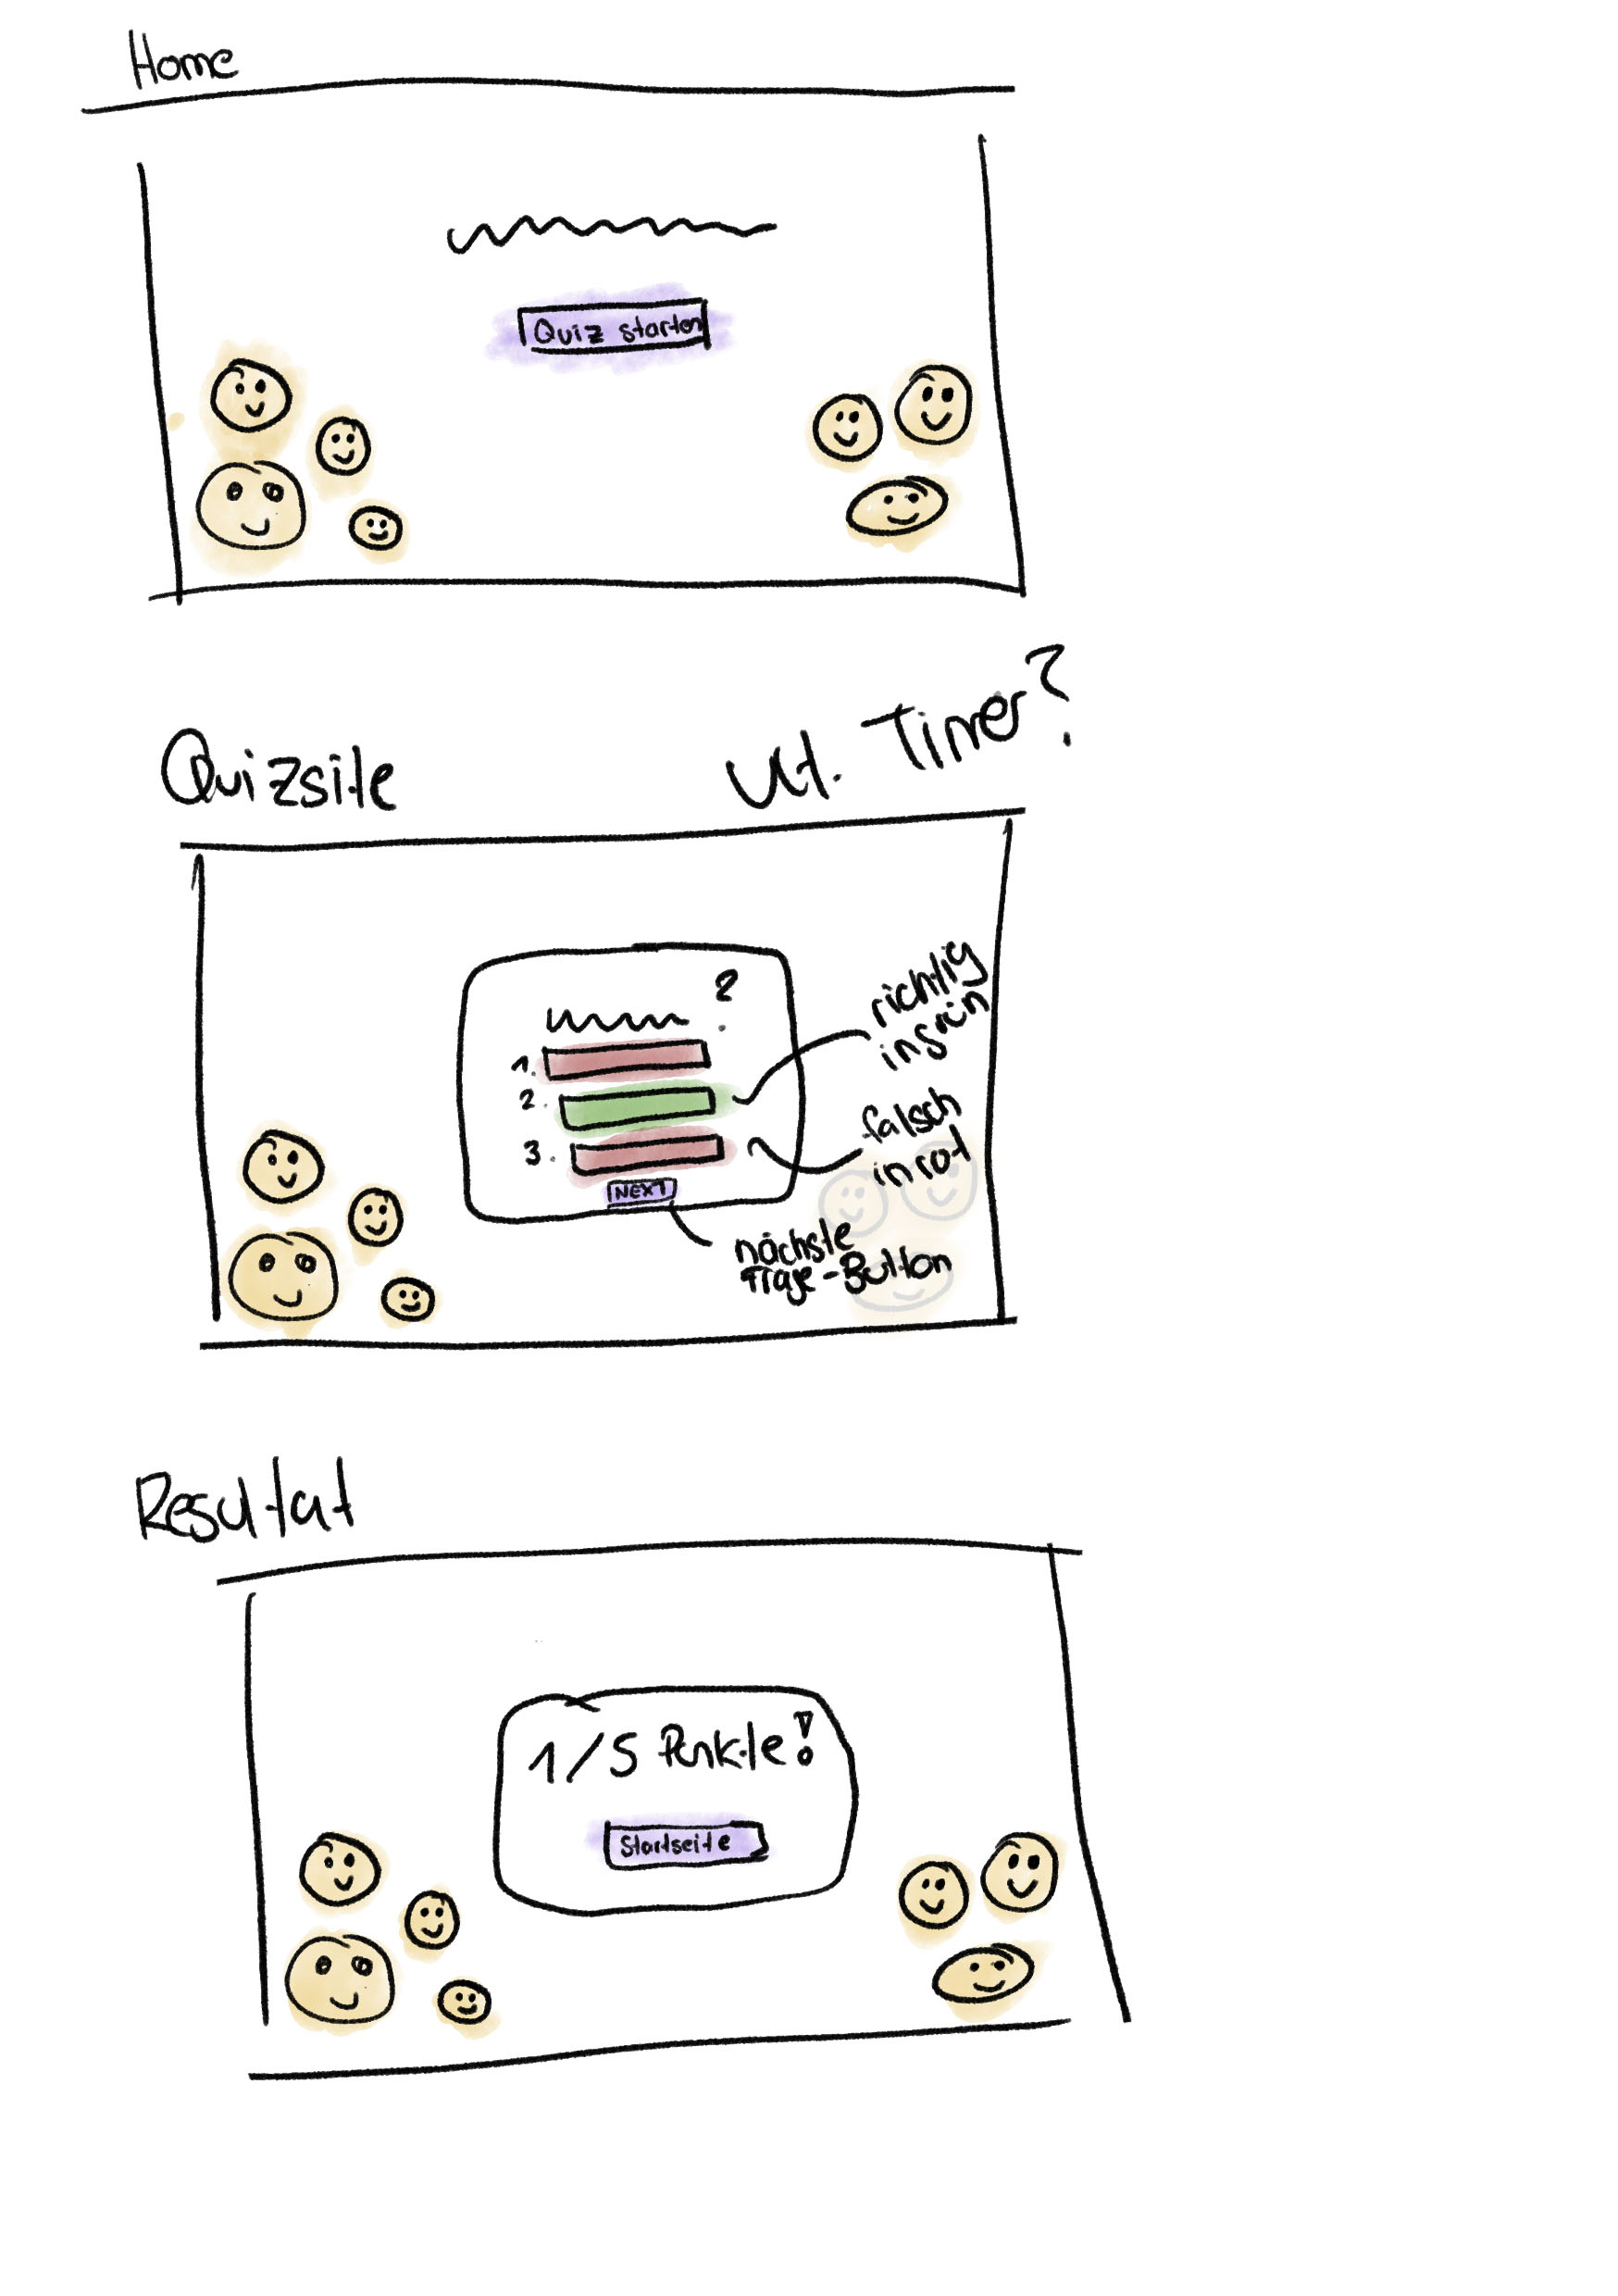 Home
Quiz starten
Quizsite
Timer?
?
richtig
in grün
1.
2.
falsch
in rot
3.
NEXT
nächste
Frage-Button
Resultat
1/5 Punkte!
Startseite